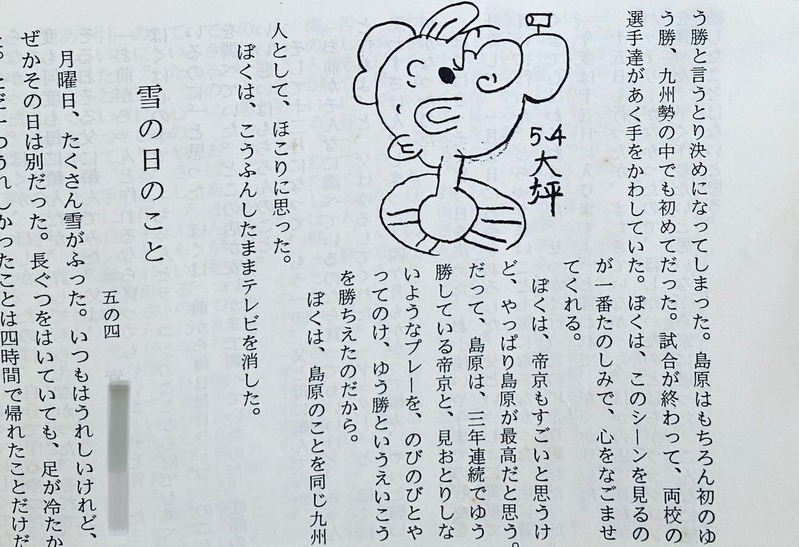 う勝と言うとり決めになってしまった。島原はもちろん初のゆ
う勝、九州勢の中でも初めてだった。試合が終わって、両校の
選手達があく手をかわしていた。ぼくは、このシーンを見るの
が一番たのしみで、心をなごませ
てくれる。
ぼくは、帝京もすごいと思うけ
ど、やっぱり島原が最高だと思う。
だって、島原は、三年連続でゆう
勝している帝京と、見おとりしな
いようなプレーを、のびのびとや
ってのけ、ゆう勝というえいこう
を勝ちえたのだから。
ぼくは、島原のことを同じ九州
54
大坪
人として、ほこりに思った。
ぼくは、こうふんしたままテレビを消した。
雪の日のこと
五の四
月曜日、たくさん雪がふった。いつもはうれしいけれど、
ぜかその日は別だった。長ぐつをはいていても、足が冷たか
つうれしかったことは四時間で帰れたことだけだ